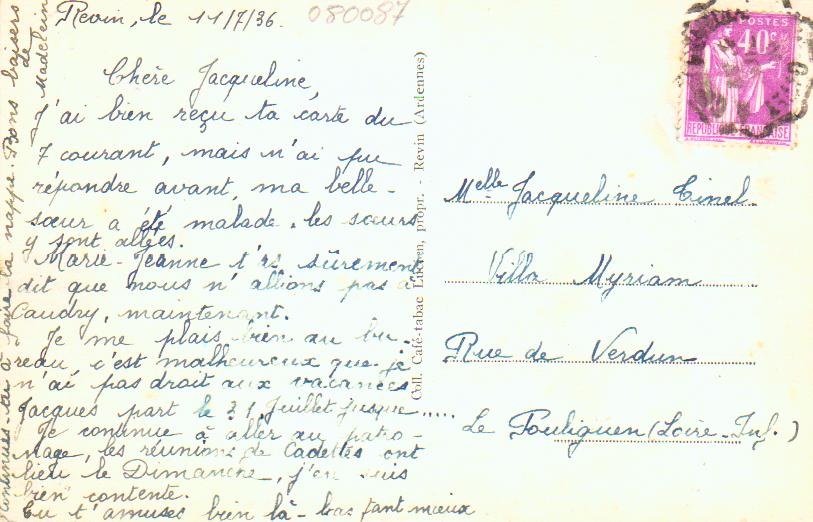 Revin, le 11/7/36.
080087
Chère Jacqueline,
J'ai bien reçu ta carte du
7 courant, mais n'ai pu
répondre avant, ma belle-
sœur a été malade. les sœurs
y sont allées.
Marie-Jeanne t'as sûrement
dit que nous n'allions pas à
Caudry, maintenant.
Je me plais bien au bu-
reau, c'est malheureux que je
n'ai pas droit aux vacances
Jacques part le 31 Juillet jusque.....
Je continue à aller au patro-
nage, les réunions de Cadettes ont
lieu le Dimanche, j'en suis
bien contente.
Tu t'amuses bien là-bas tant mieux
Continues-tu à faire la nappe. Bons baisers
de
Madeleine
Coll. Café-tabac Lucien, propr. - Revin (Ardennes)
POSTES
40c
REPUBLIQUE FRANÇAISE
Melle Jacqueline Tinel.
Villa Myriam
Rue de Verdun
Le Pouliguen (Loire-Inf.)